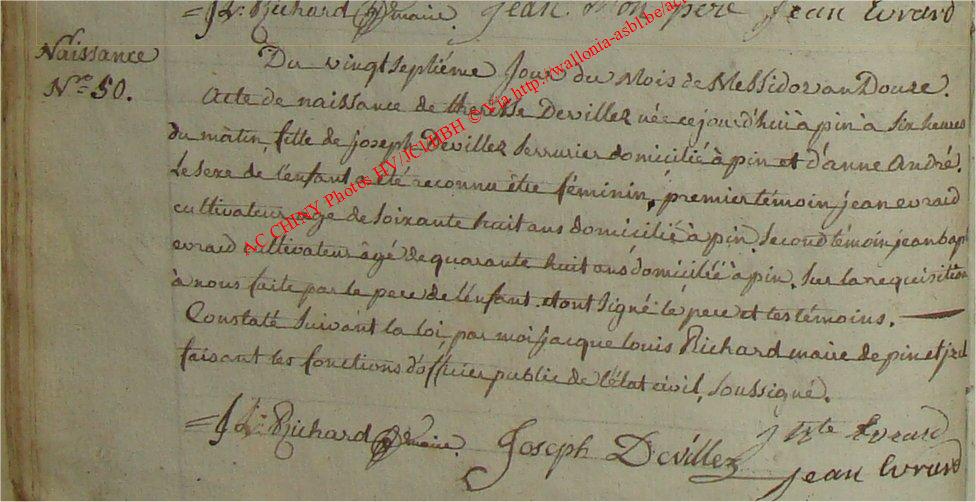 = J. L. Richard maire. Jean. Mon père Jean Evrard
Naissance
N.ro 50.
Du vingt septième Jour du Mois de Messidor an Douze.
Acte de naissance de therésse Devillez née cejourd'hui à pin à six heures
du matin, fille de joseph Devillez serrurier domicilié à pin et d'anne André.
Le sexe de l'enfant a été reconnu être féminin, premier témoin jean evraid
cultivateur agé de soixante huit ans domicilié à pin, second témoin jean bapt
evraid cultivateur âgé de quarante huit ans domicilié à pin. Sur la requisition
à nous faite par le pere de l'enfant. et ont signé le pere et les témoins.
Constaté suivant la loi, par moi jacque louis Richard maire de pin et jzel
faisant les fonctions d'officier public de l'état civil, soussigné.
= J L. Richard maire. Joseph Devillez J Bte Evrard
Jean Evrard
AC CHINY Photos HV/JCI/HBH © Via http://wallonia-asbl.be/ac